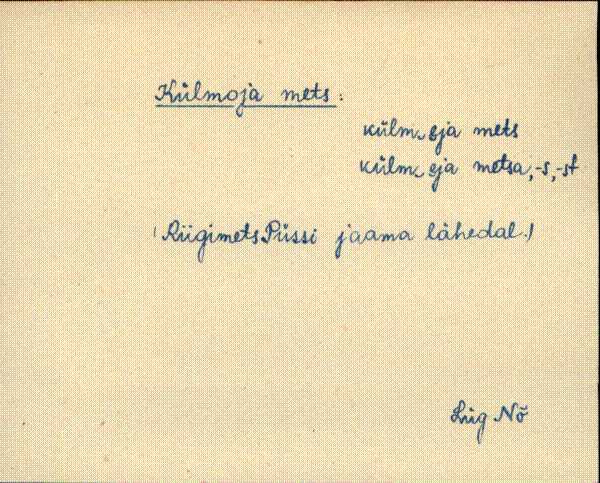 Külmoja mets:
külm͜ oja mets
külm͜ oja metsa, -s, -st
(Riigimets Püssi jaama lähedal.)
Lüg Nõ